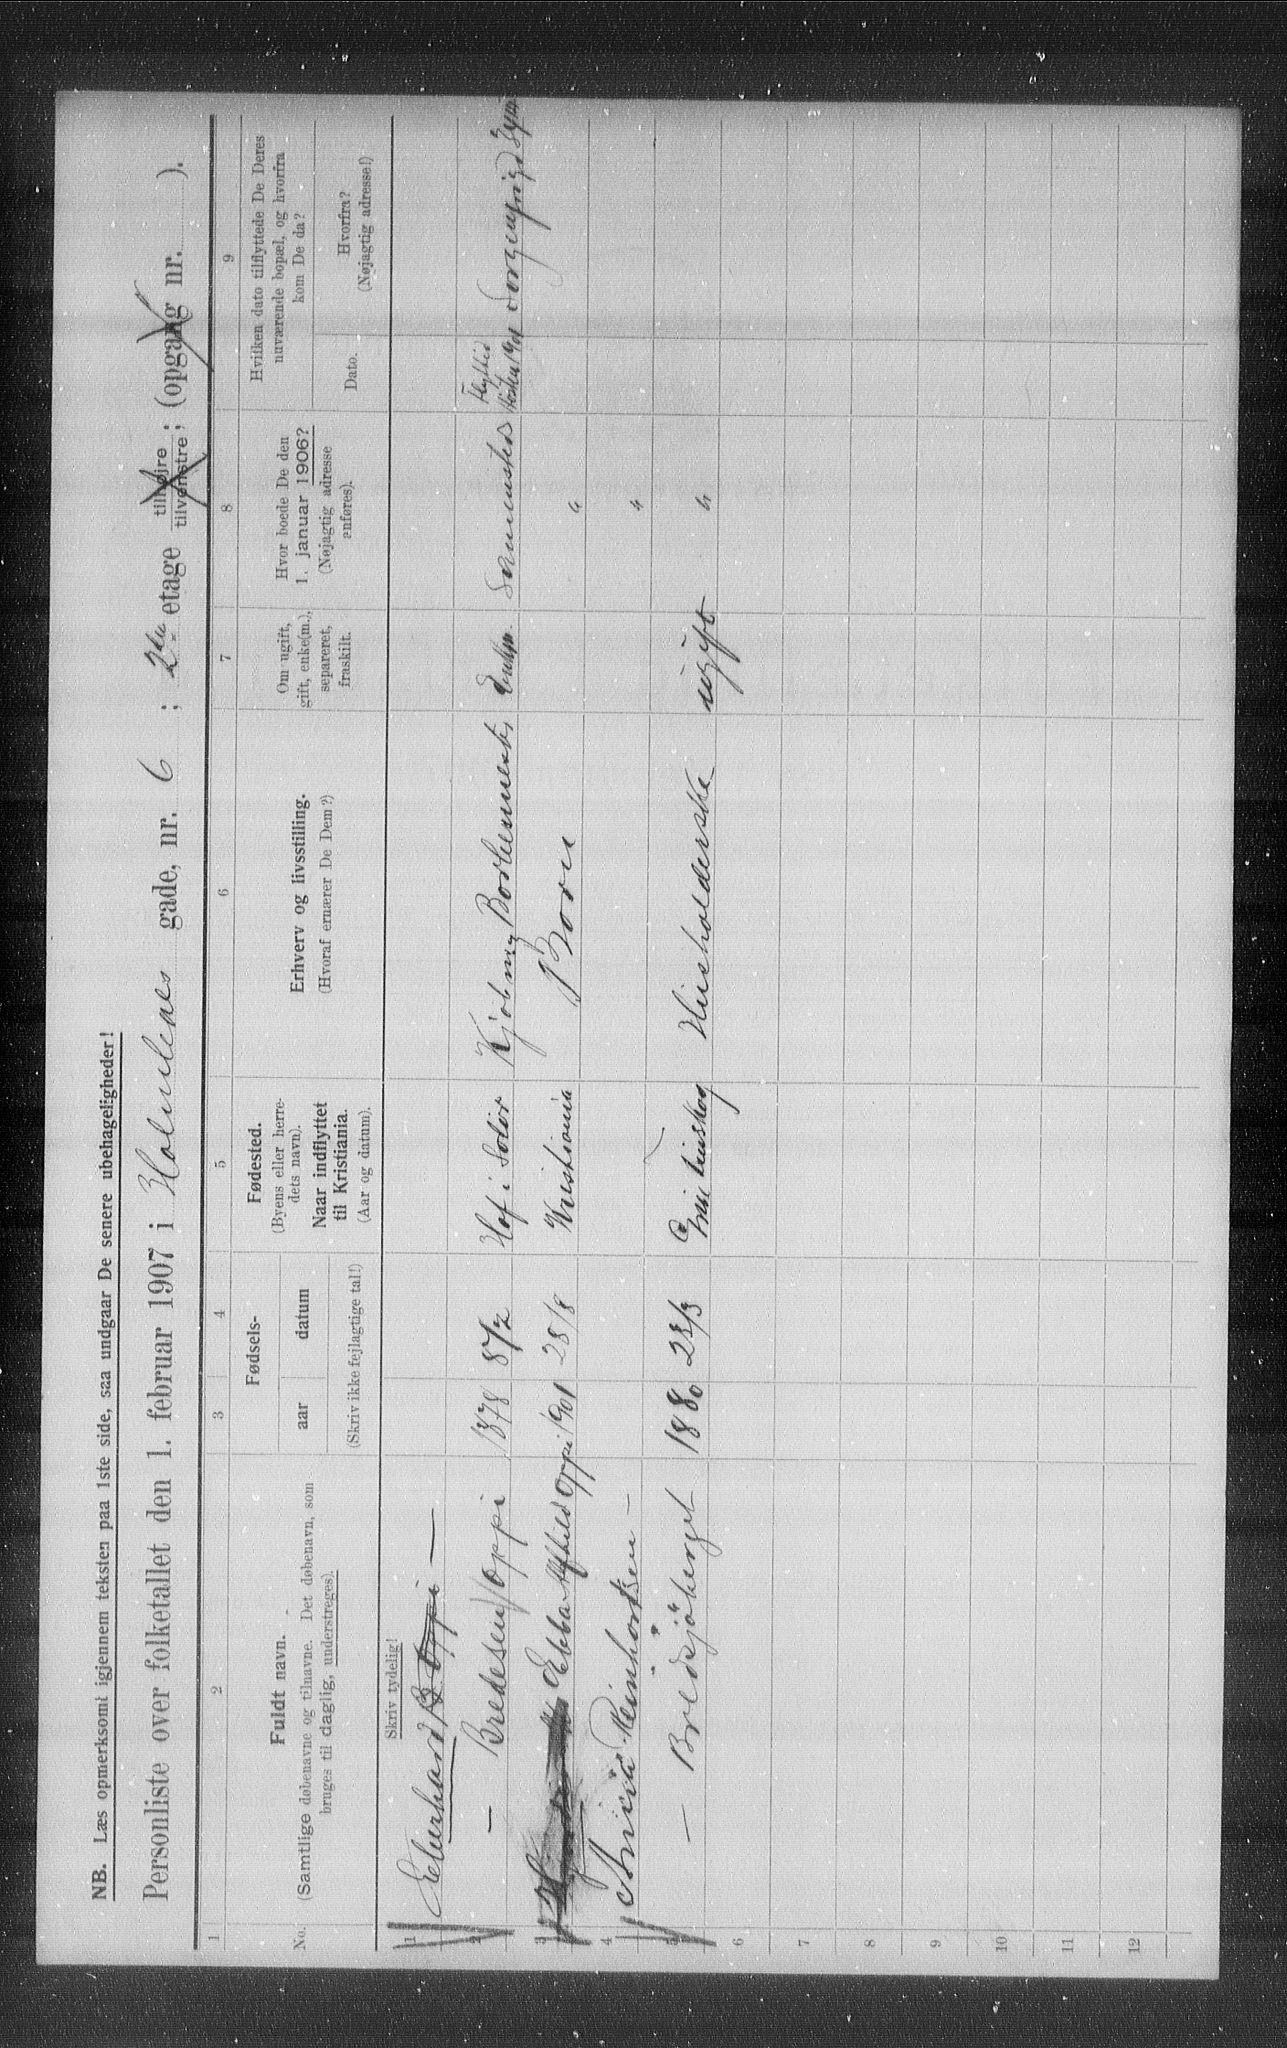 NB. Læs opmerksomt igjennem teksten paa 1ste side, saa undgaar De senere ubehageligheder!
Personliste over folketallet den 1. februar 1907 i Holmenes gade, nr. 6 ; 2den etage tilhøjre tilvenstre; (opgang nr. ).
1 2 3 4 5 6 7 8 9
No.
Fuldt navn.
(Samtlige døbenavne og tilnavne. Det døbenavn, som
bruges til daglig, understreges).
Fødsels-
aar datum
(Skriv ikke fejlagtige tal!)
Fødested.
(Byens eller herre-
dets navn).
Naar indflyttet
til Kristiania.
(Aar og datum).
Erhverv og livsstilling.
(Hvoraf ernærer De Dem?)
Om ugift,
gift, enke(m.),
separeret,
fraskilt.
Hvor boede De den
1. januar 1906?
(Nøjagtig adresse
anføres).
Hvilken dato tilflyttede De Deres
nuværende bopæl, og hvorfra
kom De da?
Dato.
Hvorfra?
(Nøjagtig adresse!)
Skriv tydelig!
1 Edvardhard B Oppi —
2 — Bredesen Oppi 1878 8/2 Hof i Solør Kjøbmg Enkm. Sammesteds Flyttet 1901
3 Ebba Alfhild Oppi 1901 28/8 Kristiania Barn "
4 Reinhortsen — "
5 — Bredsjöberget 1880 23/3 Husholderske ugift "
6
7
8
9
10
11
12